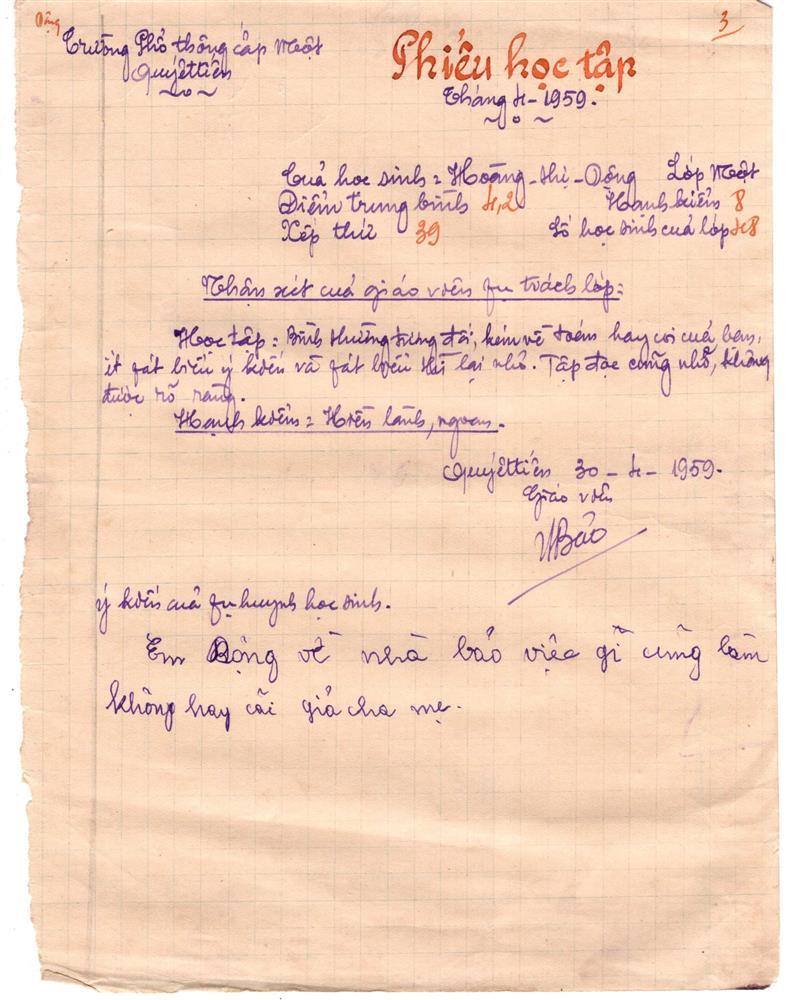 Động
3
Trường Phổ thông cấp Một
Quyếttiến
Phiếu học tập
Tháng 4-1959.
Cuả học sinh: Hoàng-thị-Động Lớp Một
Điểm trung bình 4,2 Hạnh kiểm 8
Xếp thứ 39 Số học sinh cuả lớp 48
Nhận xét cuả giáo viên fụ trách lớp:
Học tập: Bình thường tương đối, kém về toán hay coi cuả bạn,
ít fát biểu ý kiến và fát biểu thì lại nhỏ. Tập đọc cũng nhỏ, không
được rõ ràng.
Hạnh kiểm: Hiền lành, ngoan.
Quyếttiến 30-4-1959.
Giáo viên
VBảo
ý kiến cuả fụ huynh học sinh.
Em Động về nhà bảo việc gì cũng làm
không hay cãi giả cha mẹ.